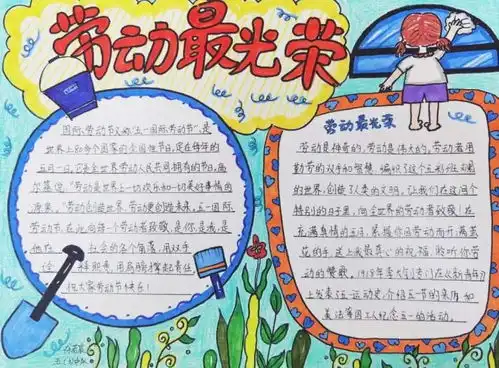 劳动最光荣
国际劳动节又称"五一国际劳动节",是
世界上80多个国家的全国性节日,定在每年
的五月一日,它是全世界劳动人民共同拥有的节日,高
尔基说:"劳动是世界上一切欢乐和一切美好事情的
源泉。"劳动创造世界,劳动更创造未来,五一国际
劳动节,在此向每一个劳动者致敬,是你,是我,是
他在 社会的各个角落,用双手
祝大家劳动节快乐!
劳动最光荣
劳动是神奇的,劳动是伟大的,劳动者用
勤劳的双手和智慧,编织了这个五彩班斓
的世界,创造了人类的文明,让我们在这间个
特别的日子里,向全世界的劳动者致敬!在
充满真情的五月,累接你因劳动而
的手,送上我最真心的祝福,聆听你劳
动的赞歌,1918年李大钊
上发表《五一运动史》,介绍五一节的来历和
美法等国工人纪念五一的活动。